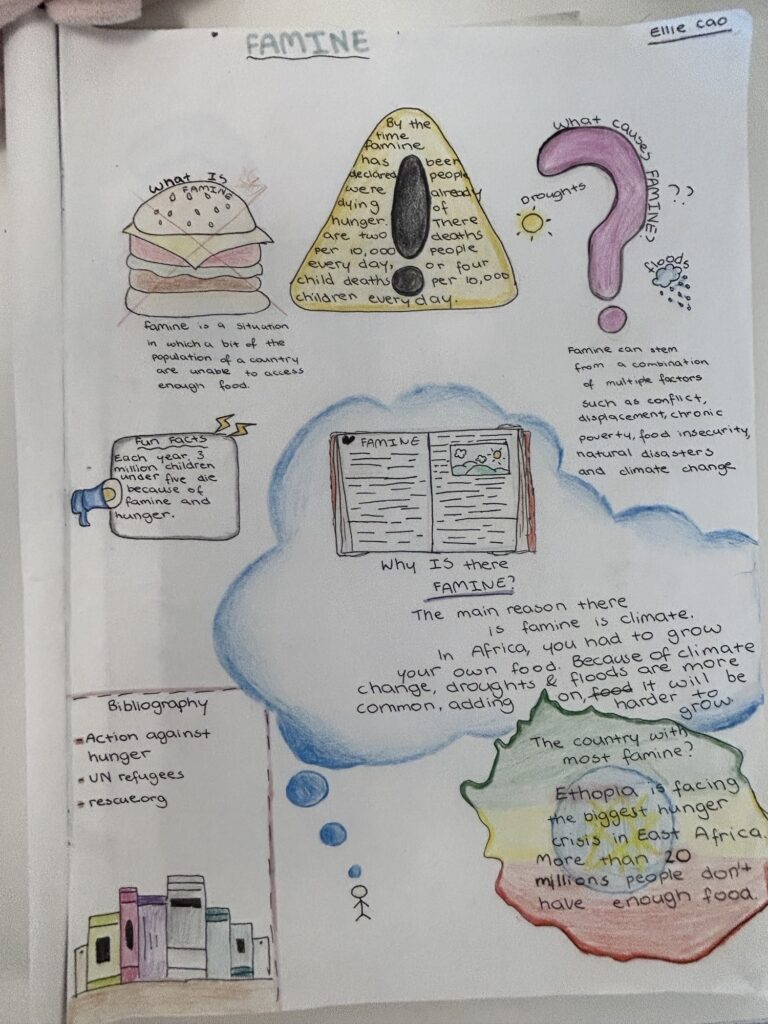 FAMINE
Ellie Cao
What IS
FAMINE
famine is a situation
in which a bit of the
population of a country
are unable to access
enough food.
By the
time
famine
has been
declared people
were already
dying of
hunger. There
are two deaths
per 10,000 people
every day, or four
child deaths per 10,000
children every day.
What causes FAMINE?
Droughts
floods
Famine can stem
from a combination
of multiple factors
such as conflict,
displacement, chronic
poverty, food insecurity,
natural disasters
and climate change
Fun Facts
Each year, 3
million children
under five die
because of
famine and
hunger.
FAMINE
Why IS there
FAMINE?
The main reason there
is famine is climate.
In Africa, you had to grow
your own food. Because of climate
change, droughts & floods are more
common, adding on, food it will be
harder to
grow
Bibliography
Action against
hunger
UN refugees
rescue.org
The country with
most famine?
Ethopia is facing
the biggest hunger
crisis in East Africa.
More than 20
millions people don't
have enough food.